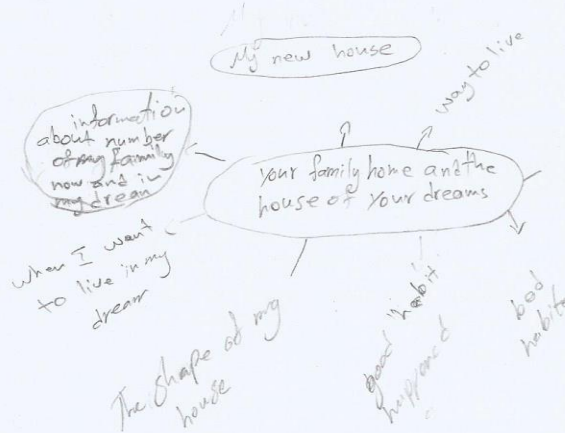 My new house
way to live
information
about number
of my fammily
now and in
my drean
your family home and the
house of your dreams
when I want
to live in my
dream
The shape of my
house
good habit
happened
bad
habits